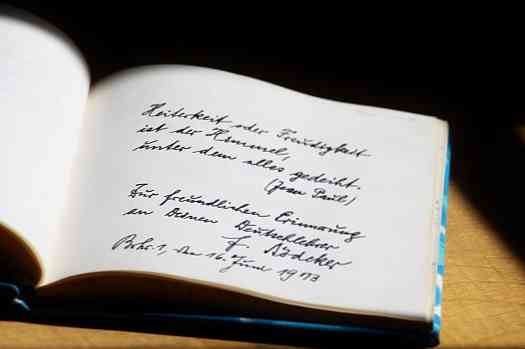 Heiterkeit oder Freudigkeit
ist der Himmel,
unter dem alles gedeiht.
(Jean Paul)
Zur freundlichen Erinnerung
an Deinen Deutschlehrer
F. Rödecker
den 16. Juni 19